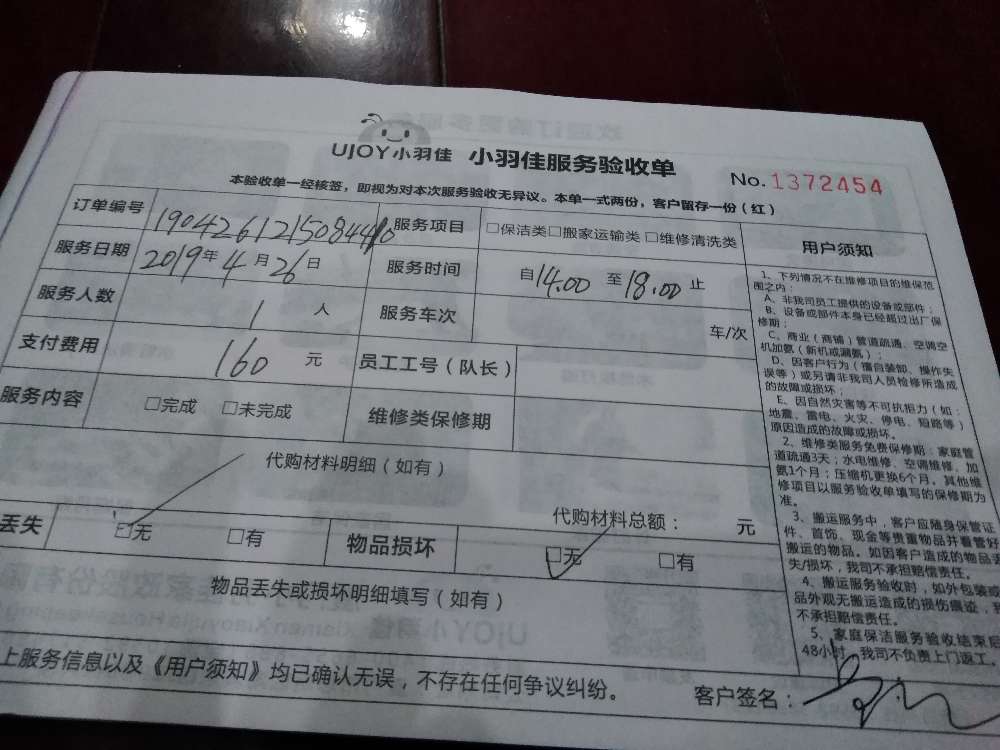 UJOY小羽佳 小羽佳服务验收单
No.1372454
本验收单一经核签，即视为对本次服务验收无异议。本单一式两份，客户留存一份（红）
订单编号 服务项目 □保洁类□搬家运输类□维修清洗类
服务日期 2019年4月26日 服务时间 自14.00至18.00止
服务人数 1 人 服务车次 车/次
支付费用 160 元 员工工号（队长）
服务内容 □完成 □未完成 维修类保修期
代购材料明细（如有）
代购材料总额： 元
丢失 □无 □有 物品损坏 □无 □有
物品丢失或损坏明细填写（如有）
上服务信息以及《用户须知》均已确认无误，不存在任何争议纠纷。
客户签名：
用户须知
1、下列情况不在维修项目的维保范
围之内：
A、非我司员工提供的设备或部件；
B、设备或部件本身已经超过出厂保
修期；
C、商业（商铺）管道疏通、空调空
机加氨（新机或漏氨）；
D、因客户行为（擅自装卸、操作失
误等）或另请非我司人员检修所造成
的故障或损坏；
E、因自然灾害等不可抗拒力（如：
地震、雷电、火灾、停电、短路等）
原因造成的故障或损坏。
2、维修类服务免费保修期：家庭管
道疏通3天；水电维修、空调维修、加
氨1个月；压缩机更换6个月。其他维
修项目以服务验收单填写的保修期为
准。
3、搬运服务中，客户应随身保管证
件、首饰、现金等贵重物品并看管好
搬运的物品。如因客户造成的物品丢
失/损坏，我司不承担赔偿责任。
4、搬运服务验收时，如外包装或
品外观无搬运造成的损伤痕迹，
不承担赔偿责任。
5、家庭保洁服务验收结束后
48小时，我司不负责上门返工。